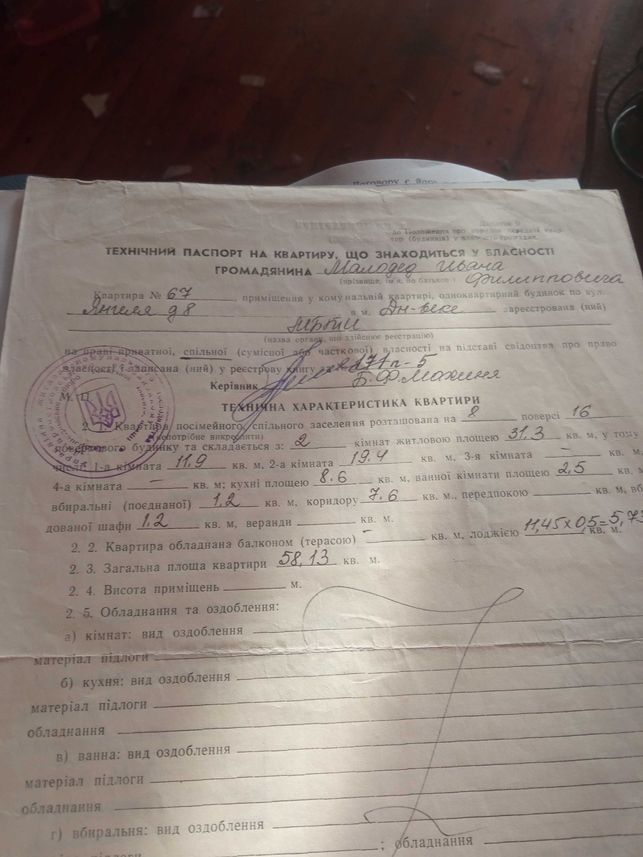 Договору с
до Положення про порядок передачі квар-
тир (будинків) у власність громадян.
ТЕХНІЧНИЙ ПАСПОРТ НА КВАРТИРУ, ЩО ЗНАХОДИТЬСЯ У ВЛАСНОСТІ
ГРОМАДЯНИНА Малодед Ивана
(прізвище, ім'я, по батькові) Филипповича
Квартира № 67 приміщення у комунальній квартирі, одноквартирний будинок по вул.
Янгеля д 8 в м. Дн-вске зареєстрована (ний)
(назва органу, що здійснює реєстрацію)
на праві приватної, спільної (сумісної або часткової) власності на підставі свідоцтва про право
власності і записана (ний) у реєстрову книгу 171п-5
Керівник Б.Ф.Махиня
М. П.
ТЕХНІЧНА ХАРАКТЕРИСТИКА КВАРТИРИ
2. 1. Квартира посімейного, спільного заселення розташована на 8 поверсі 16
(непотрібне викреслити)
поверхового будинку та складається з: 2 кімнат житловою площею 31,3 кв. м, у тому
числі 1-а кімната 11,9 кв. м, 2-а кімната 19.4 кв. м, 3-я кімната — кв. м,
4-а кімната — кв. м; кухні площею 8.6 кв. м, ванної кімнати площею 2,5 кв. м
вбиральні (поєднаної) 1,2 кв. м, коридору 7.6 кв. м., передпокою кв. м, вбу-
дованої шафи 1,2 кв. м, веранди кв. м.
2. 2. Квартира обладнана балконом (терасою) — кв. м, лоджією 11,45х0,5=5,73 кв. м.
2. 3. Загальна площа квартири 58,13 кв. м.
2. 4. Висота приміщень м.
2. 5. Обладнання та оздоблення:
а) кімнат: вид оздоблення
матеріал підлоги
б) кухня: вид оздоблення
матеріал підлоги
обладнання
в) ванна: вид оздоблення
матеріал підлоги
обладнання
г) вбиральня: вид оздоблення
; обладнання